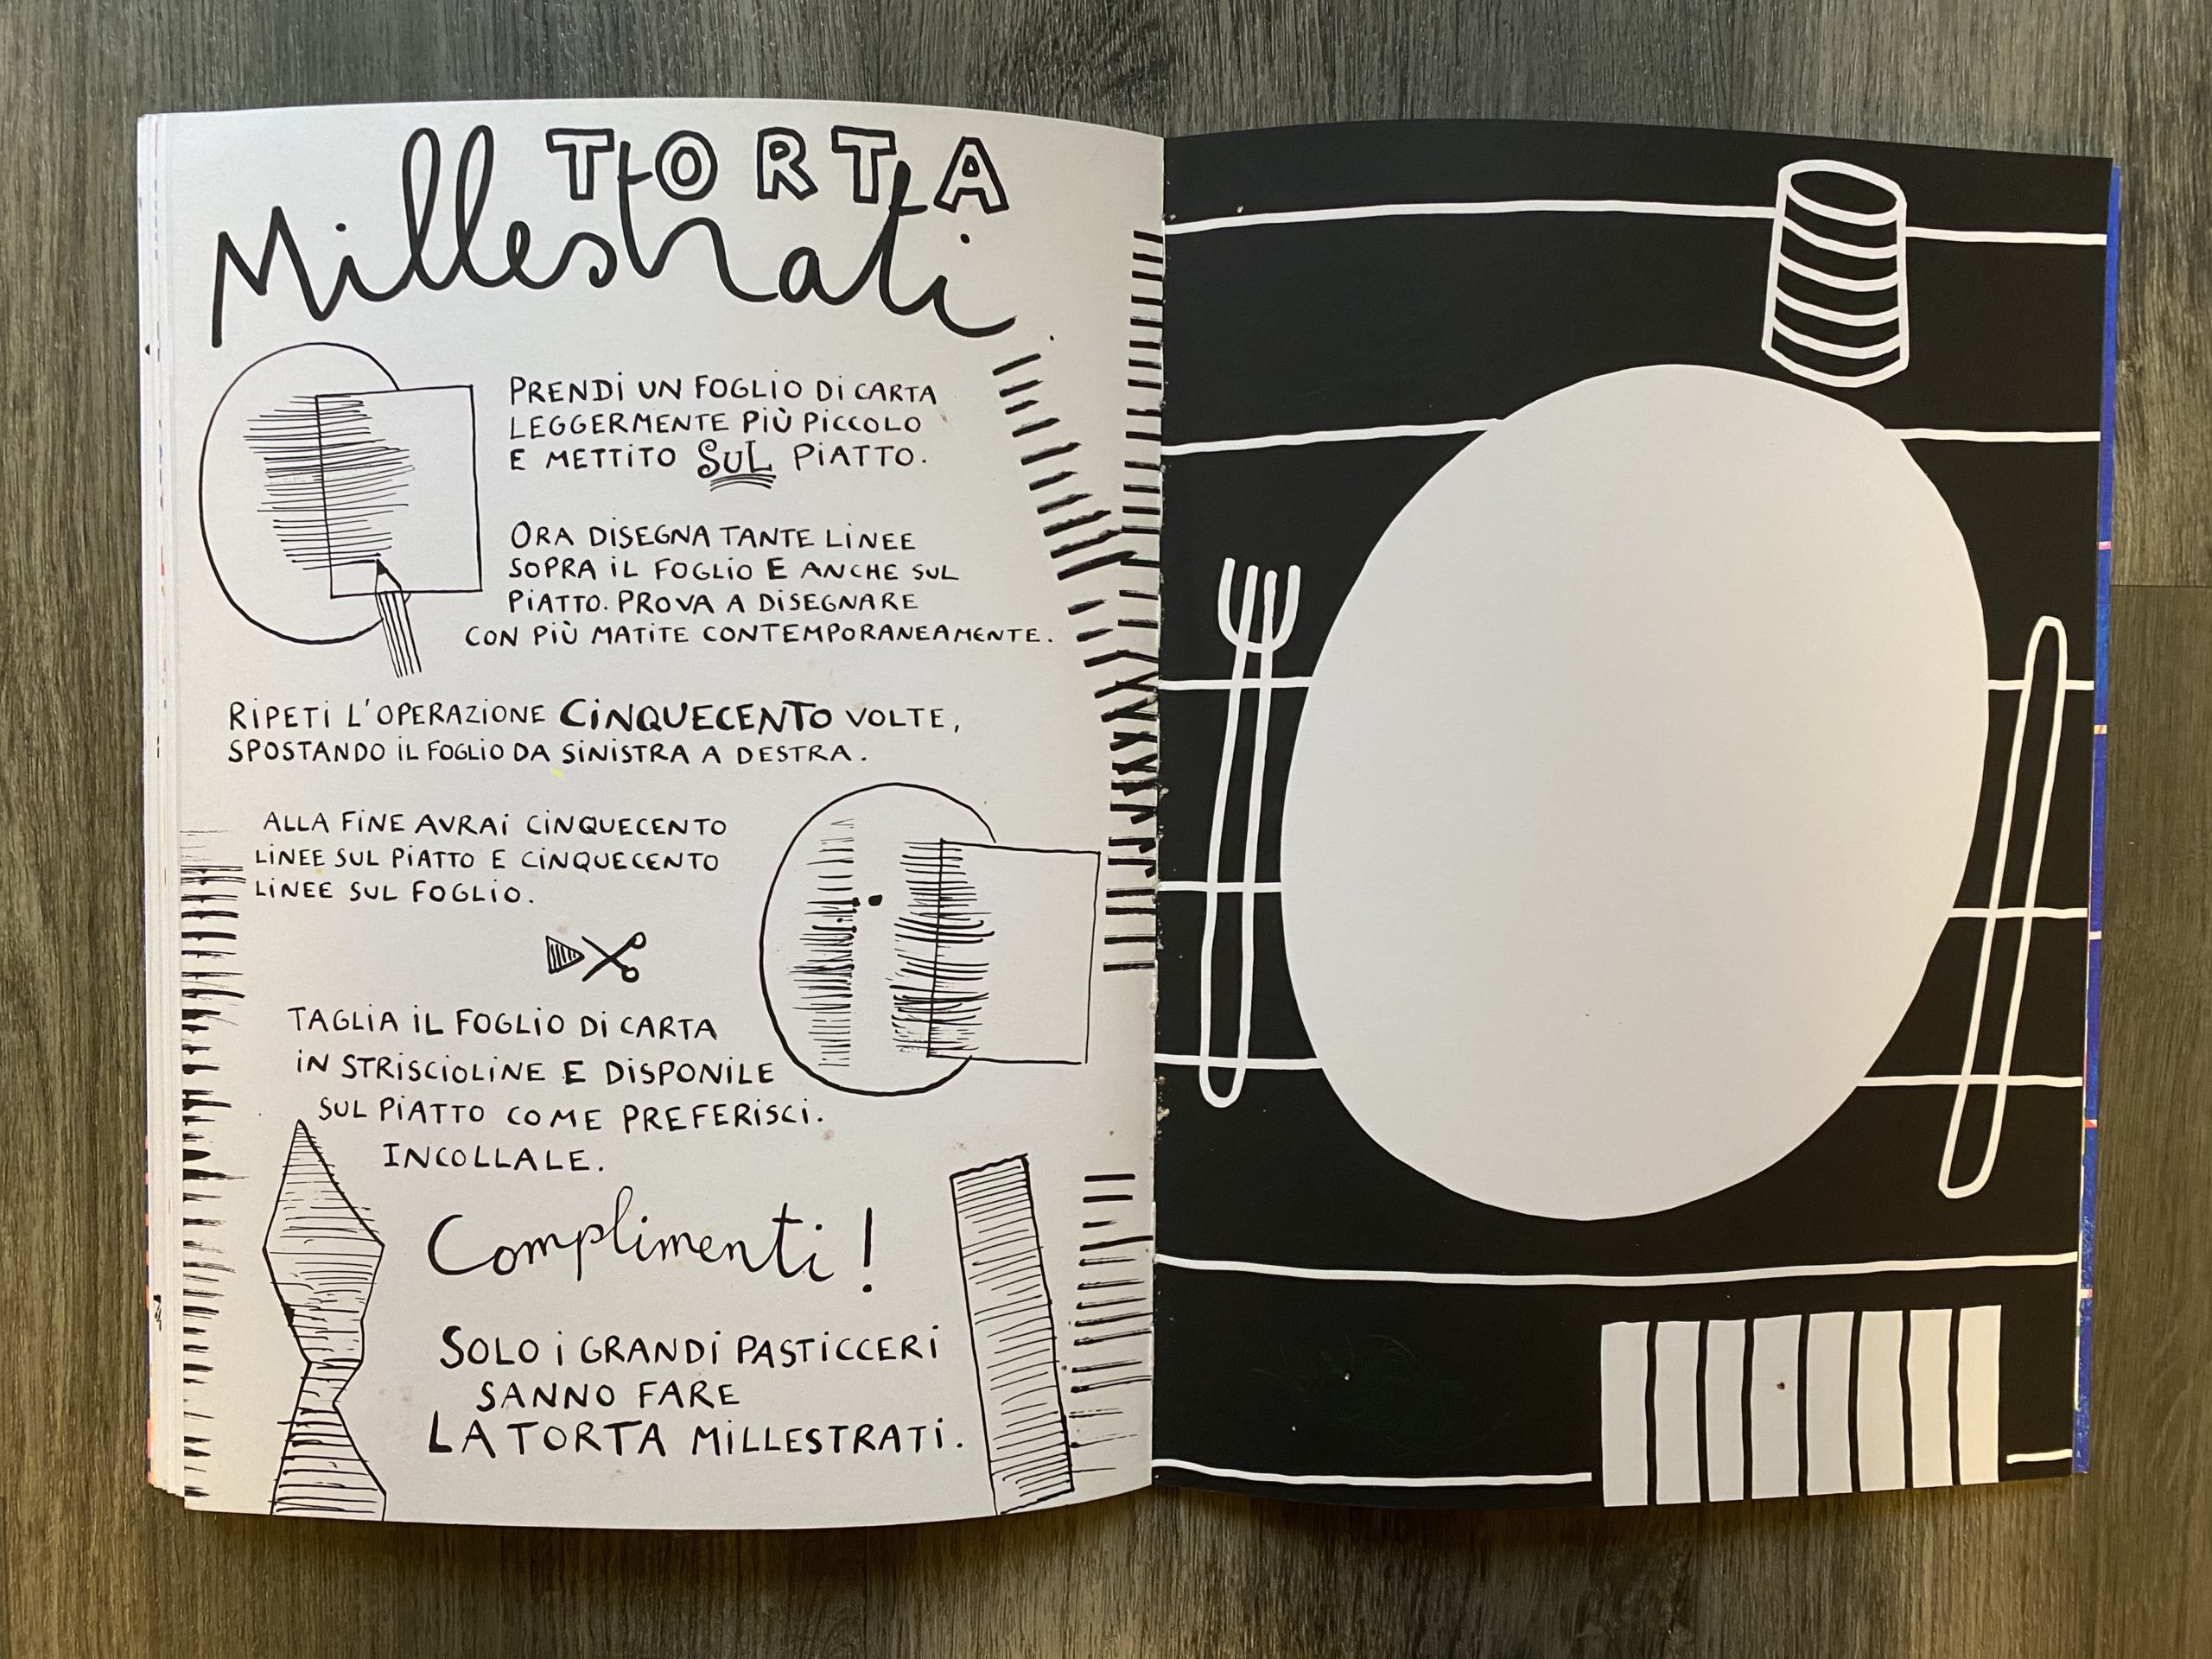 TORTA
Millestrati
PRENDi UN FOGLiO Di CARTA
LEGGERMENTE PiÙ PiCCOLO
E METTiTO SUL PiATTO.
ORA DiSEGNA TANTE LiNEE
SOPRA iL FOGLiO E ANCHE SUL
PiATTO. PROVA A DiSEGNARE
CON PiÙ MATiTE CONTEMPORANEAMENTE.
RiPETi L'OPERAZiONE CiNQUECENTO VOLTE,
SPOSTANDO iL FOGLiO DA SiNiSTRA A DESTRA.
ALLA FiNE AVRAi CiNQUECENTO
LiNEE SUL PiATTO E CiNQUECENTO
LiNEE SUL FOGLiO.
TAGLiA iL FOGLiO Di CARTA
iN STRiSCiOLiNE E DiSPONiLE
SUL PiATTO COME PREFERiSCi.
INCOLLALE.
Complimenti!
SOLO i GRANDi PASTiCCERi
SANNO FARE
LA TORTA MiLLESTRATi.